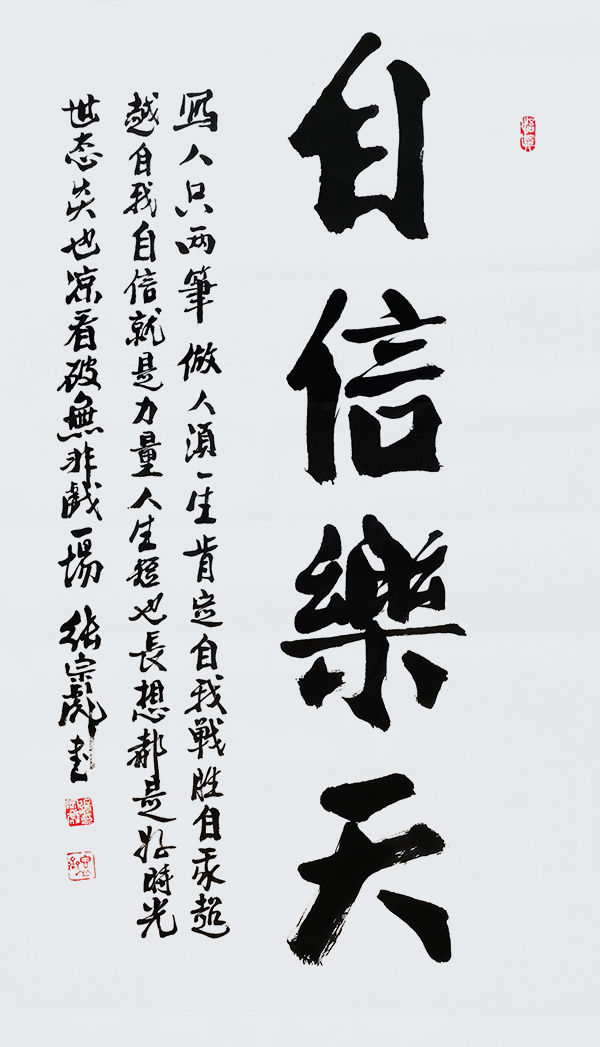 自信樂天
寫人只两筆 做人須一生肯定自我戦胜自我超
越自我自信就是力量人生短也長想都是好時光
世态炎也凉看破無非戲一場 張宗彪书